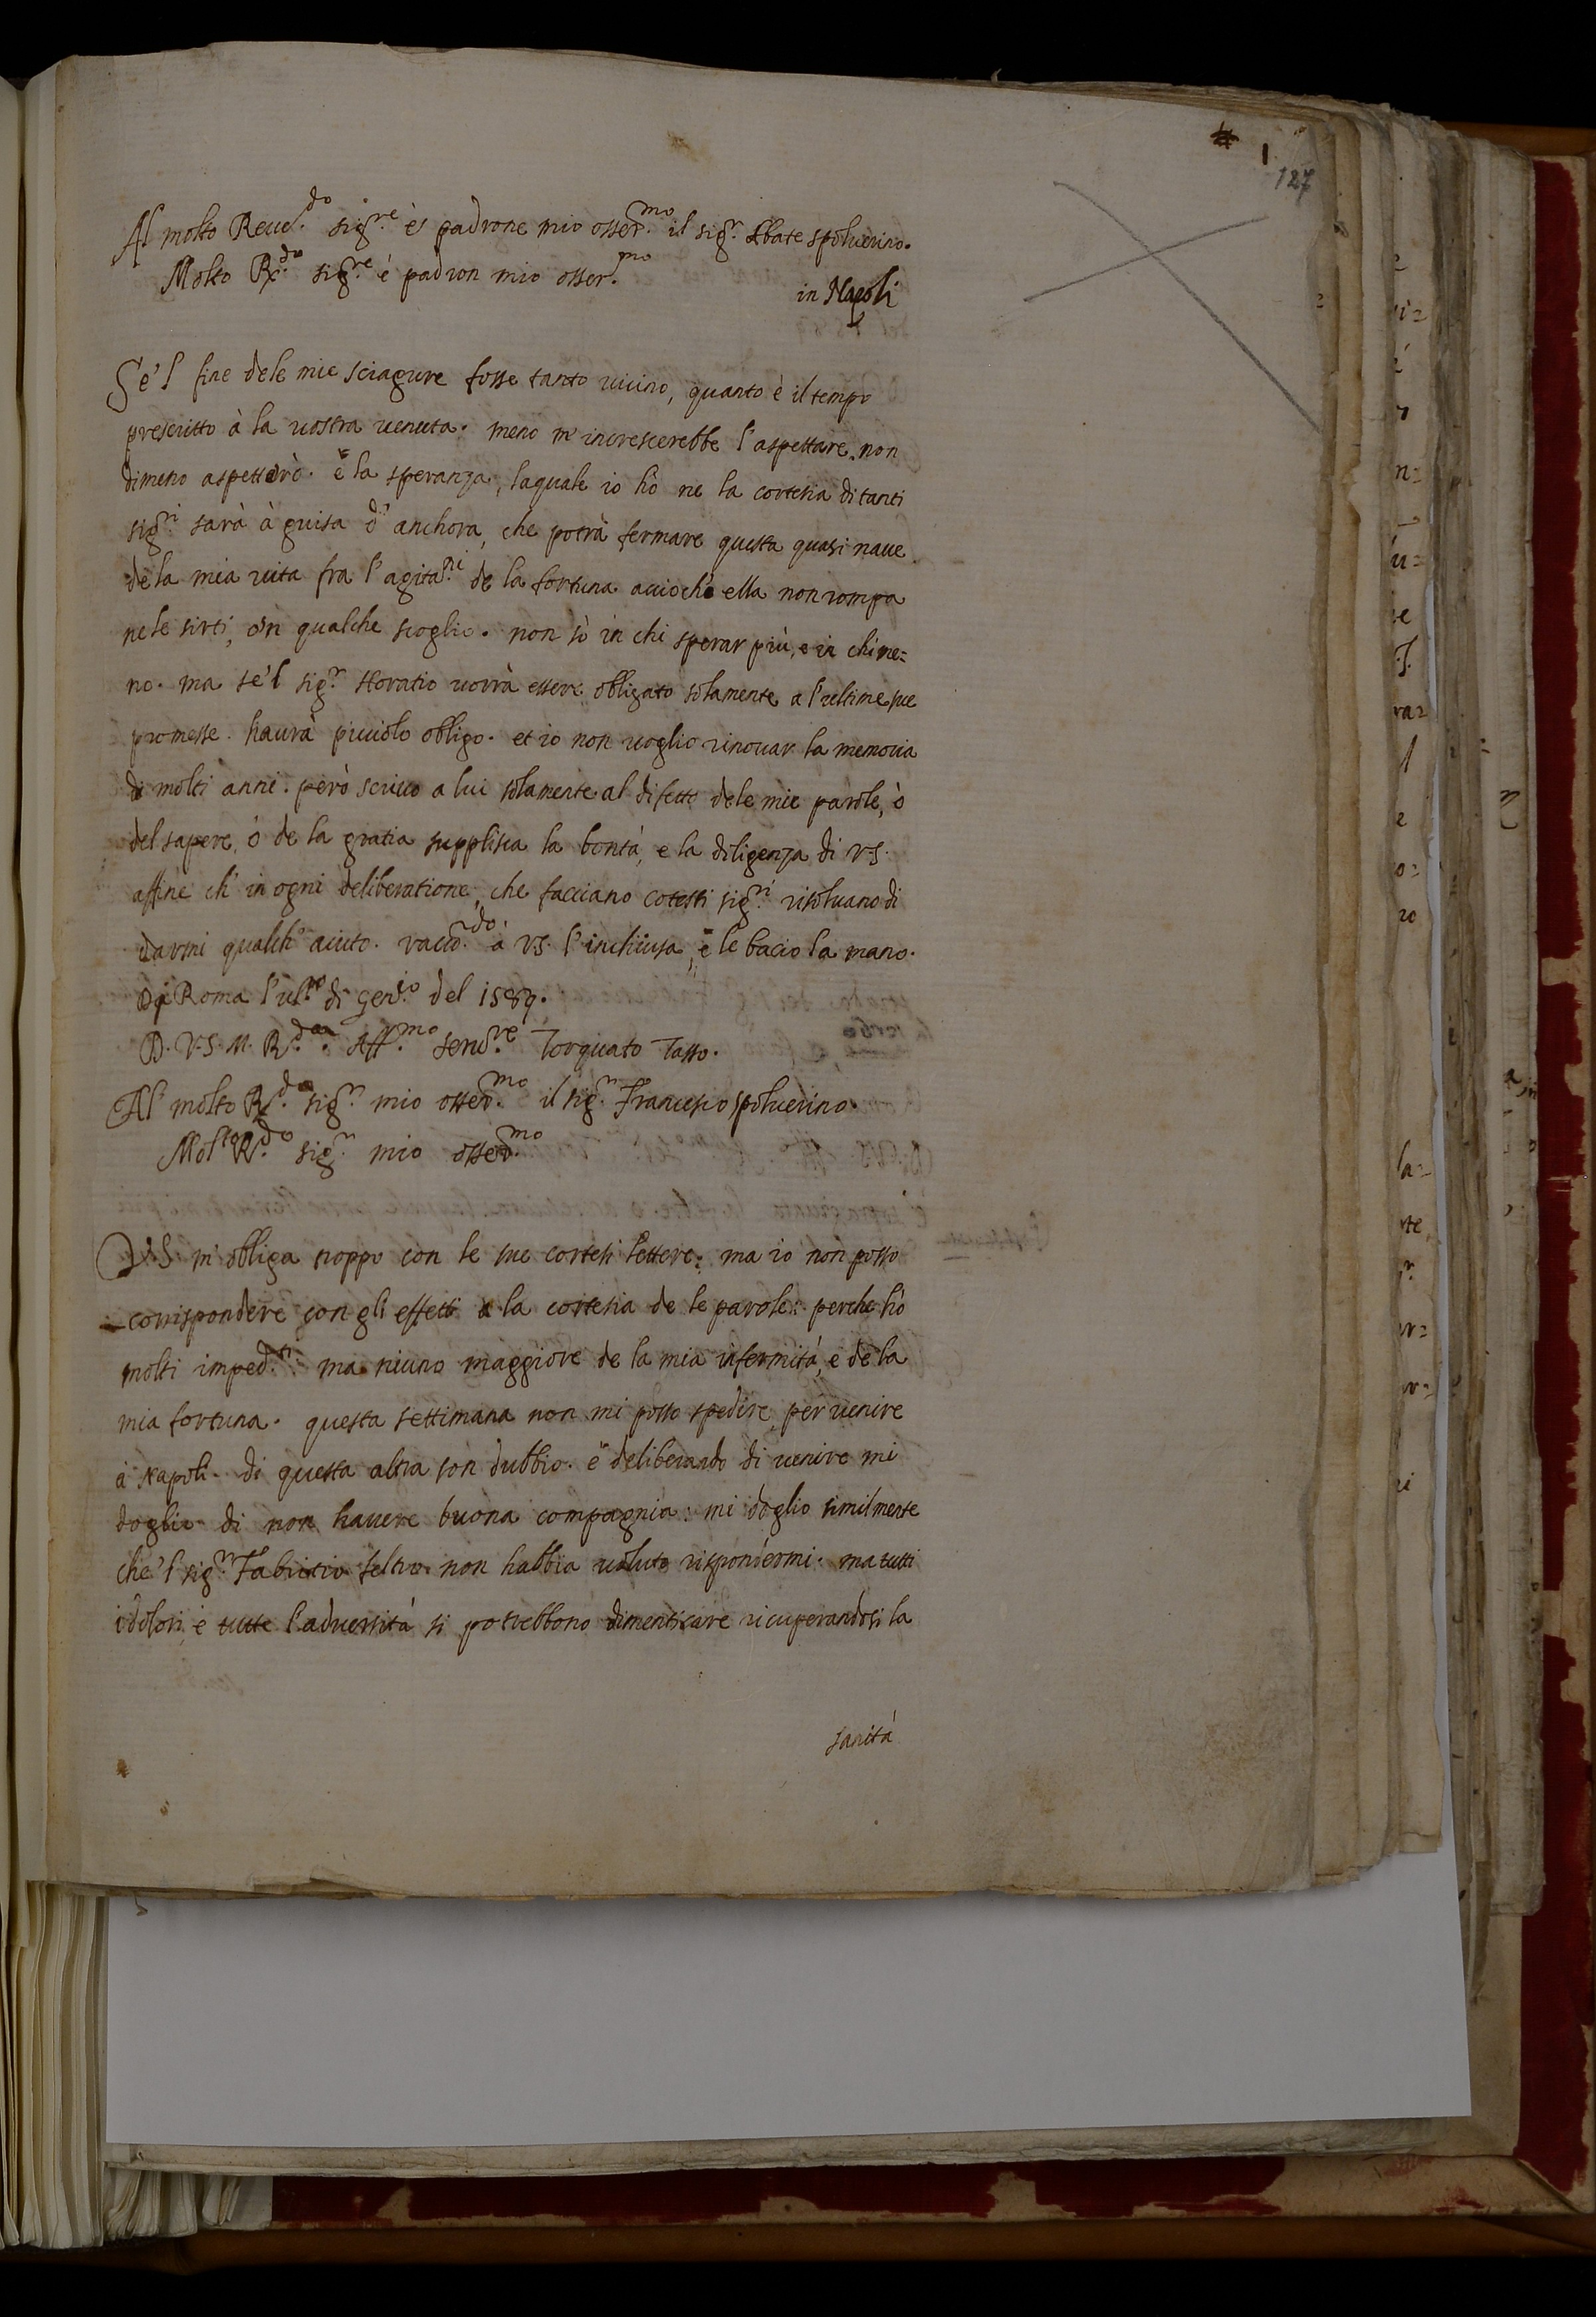 1
127
Al molto Reue.do sig.re et padrone mio osser.mo il sig.r Abate spoluerino.
Molto R.do sig.re é padron mio osser.mo
in Napoli
Se'l fine dele mie sciagure fosse tanto uicino, quanto è il tempo
prescritto à la uostra uenuta. meno m'increscerebbe l'aspettare. non
dimeno aspetterò. è la speranza, laquale io hò ne la cortesia di tanti
sig.ri sarà à guisa d'anchora, che potrà fermare questa quasi naue
dela mia uita fra l'agita.ni de la fortuna acciochè ella non rompa
nele sirti, ò in qualche scoglio. non sò in chi sperar più, e in chi me=
no. ma se'l sig.r Horatio uorrà essere obligato solamente a l'ultime sue
promesse. haurà picciolo obligo. et io non uoglio rinouar la memoria
di molti anni. però scriuo a lui solamente al difetto dele mie parole, ò
del sapere, ò de la gratia supplisca la bontà, e la diligenza di V.S.
affine ch' in ogni deliberatione, che facciano cotesti sig.ri risoluano di
darmi qualch' aiuto. racco.do à V.S. l'inchiusa, è le bacio la mano.
Di Roma l'ul.mo di Gen.io del 1589.
D. V.S. M. R.da Aff.mo seru.re Torquato Tasso.
Al molto R.do sig.r mio osser.mo il sig.r Francesco spoluerino.
Molto R.do sig.r mio osser.mo
V.S. m'obliga troppo con le sue cortesi lettere: ma io non posso
corrispondere con gli effetti a la cortesia de le parole: perche hò
molti imped.ti ma niuno maggiore de la mia infermità, e de la
mia fortuna. questa settimana non mi posso spedire, per uenire
à Napoli. di questa altra son dubbio. è deliberando di uenire mi
doglio di non hauere buona compagnia: mi doglio similmente
che'l sig.r Fabritio feltro non habbia uoluto rispondermi. ma tutti
i dolori, e tutte l'aduersità si potrebbono dimenticare ricuperandosi la
sanità